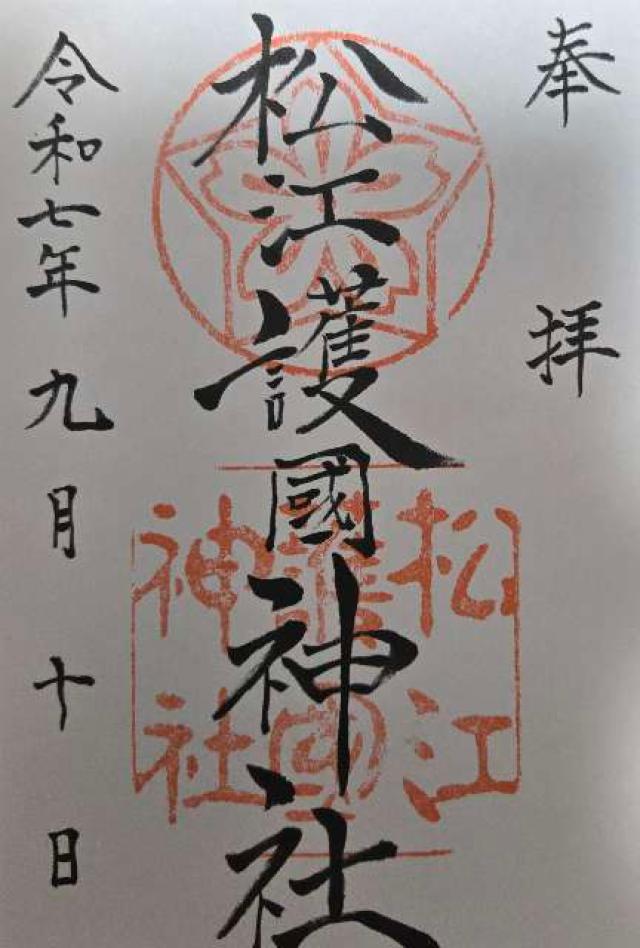 奉拝
松江護國神社
令和七年九月十日
松江
護國
神社